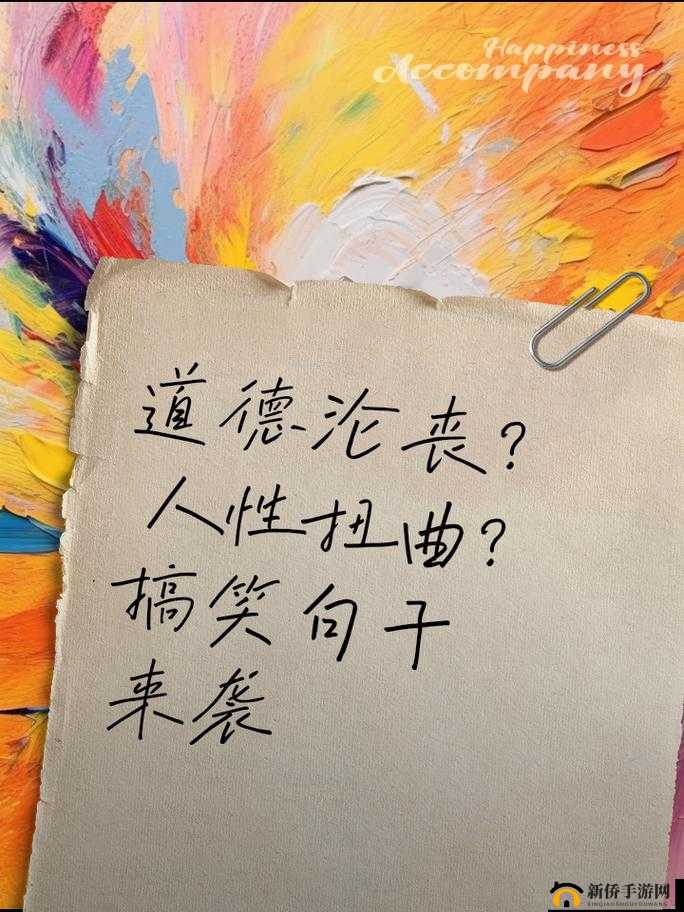 Happiness
Accompany
道德沦丧?
人性扭曲?
搞笑句子
来袭
新侨手游网
XINQIAOSHOUYOUWANG